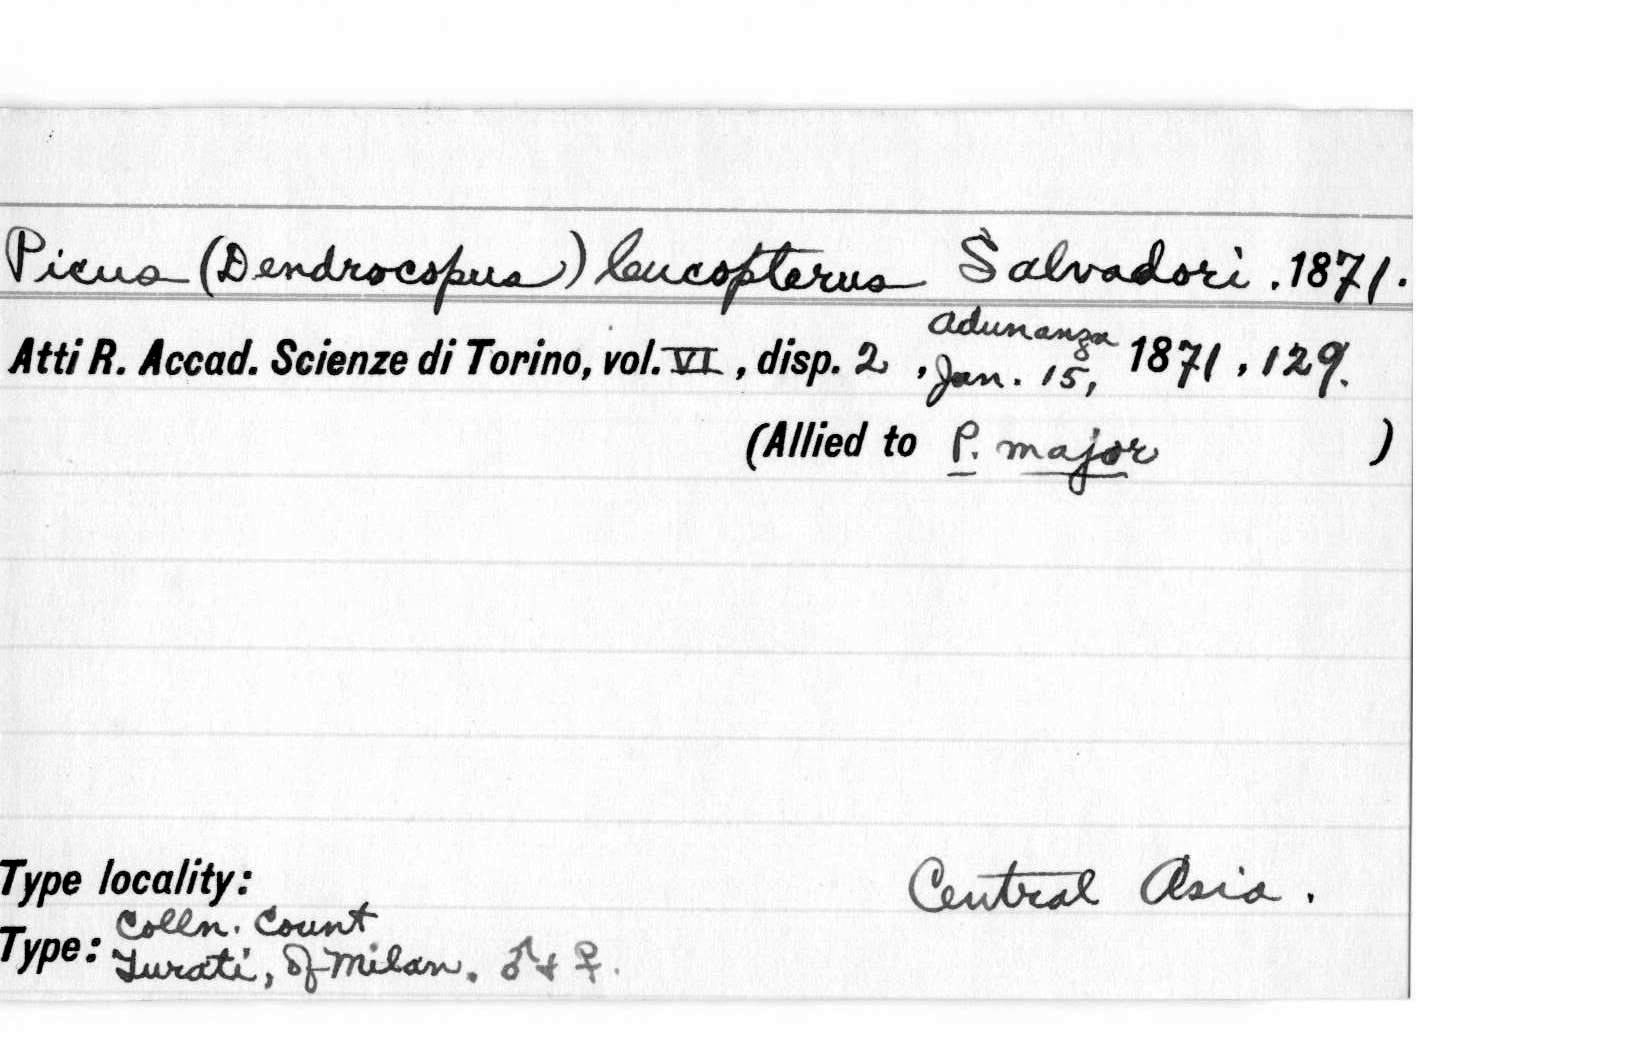 Picus (Dendrocopus) leucopterus Salvadori. 1871.
Atti R. Accad. Scienze di Torino, vol. VI, disp. 2, adunanza Jan. 15, 1871, 129.
(Allied to P. major)
Type locality: Central Asia.
Type: Colln. Count
Turati, of Milan. ♂ + ♀.